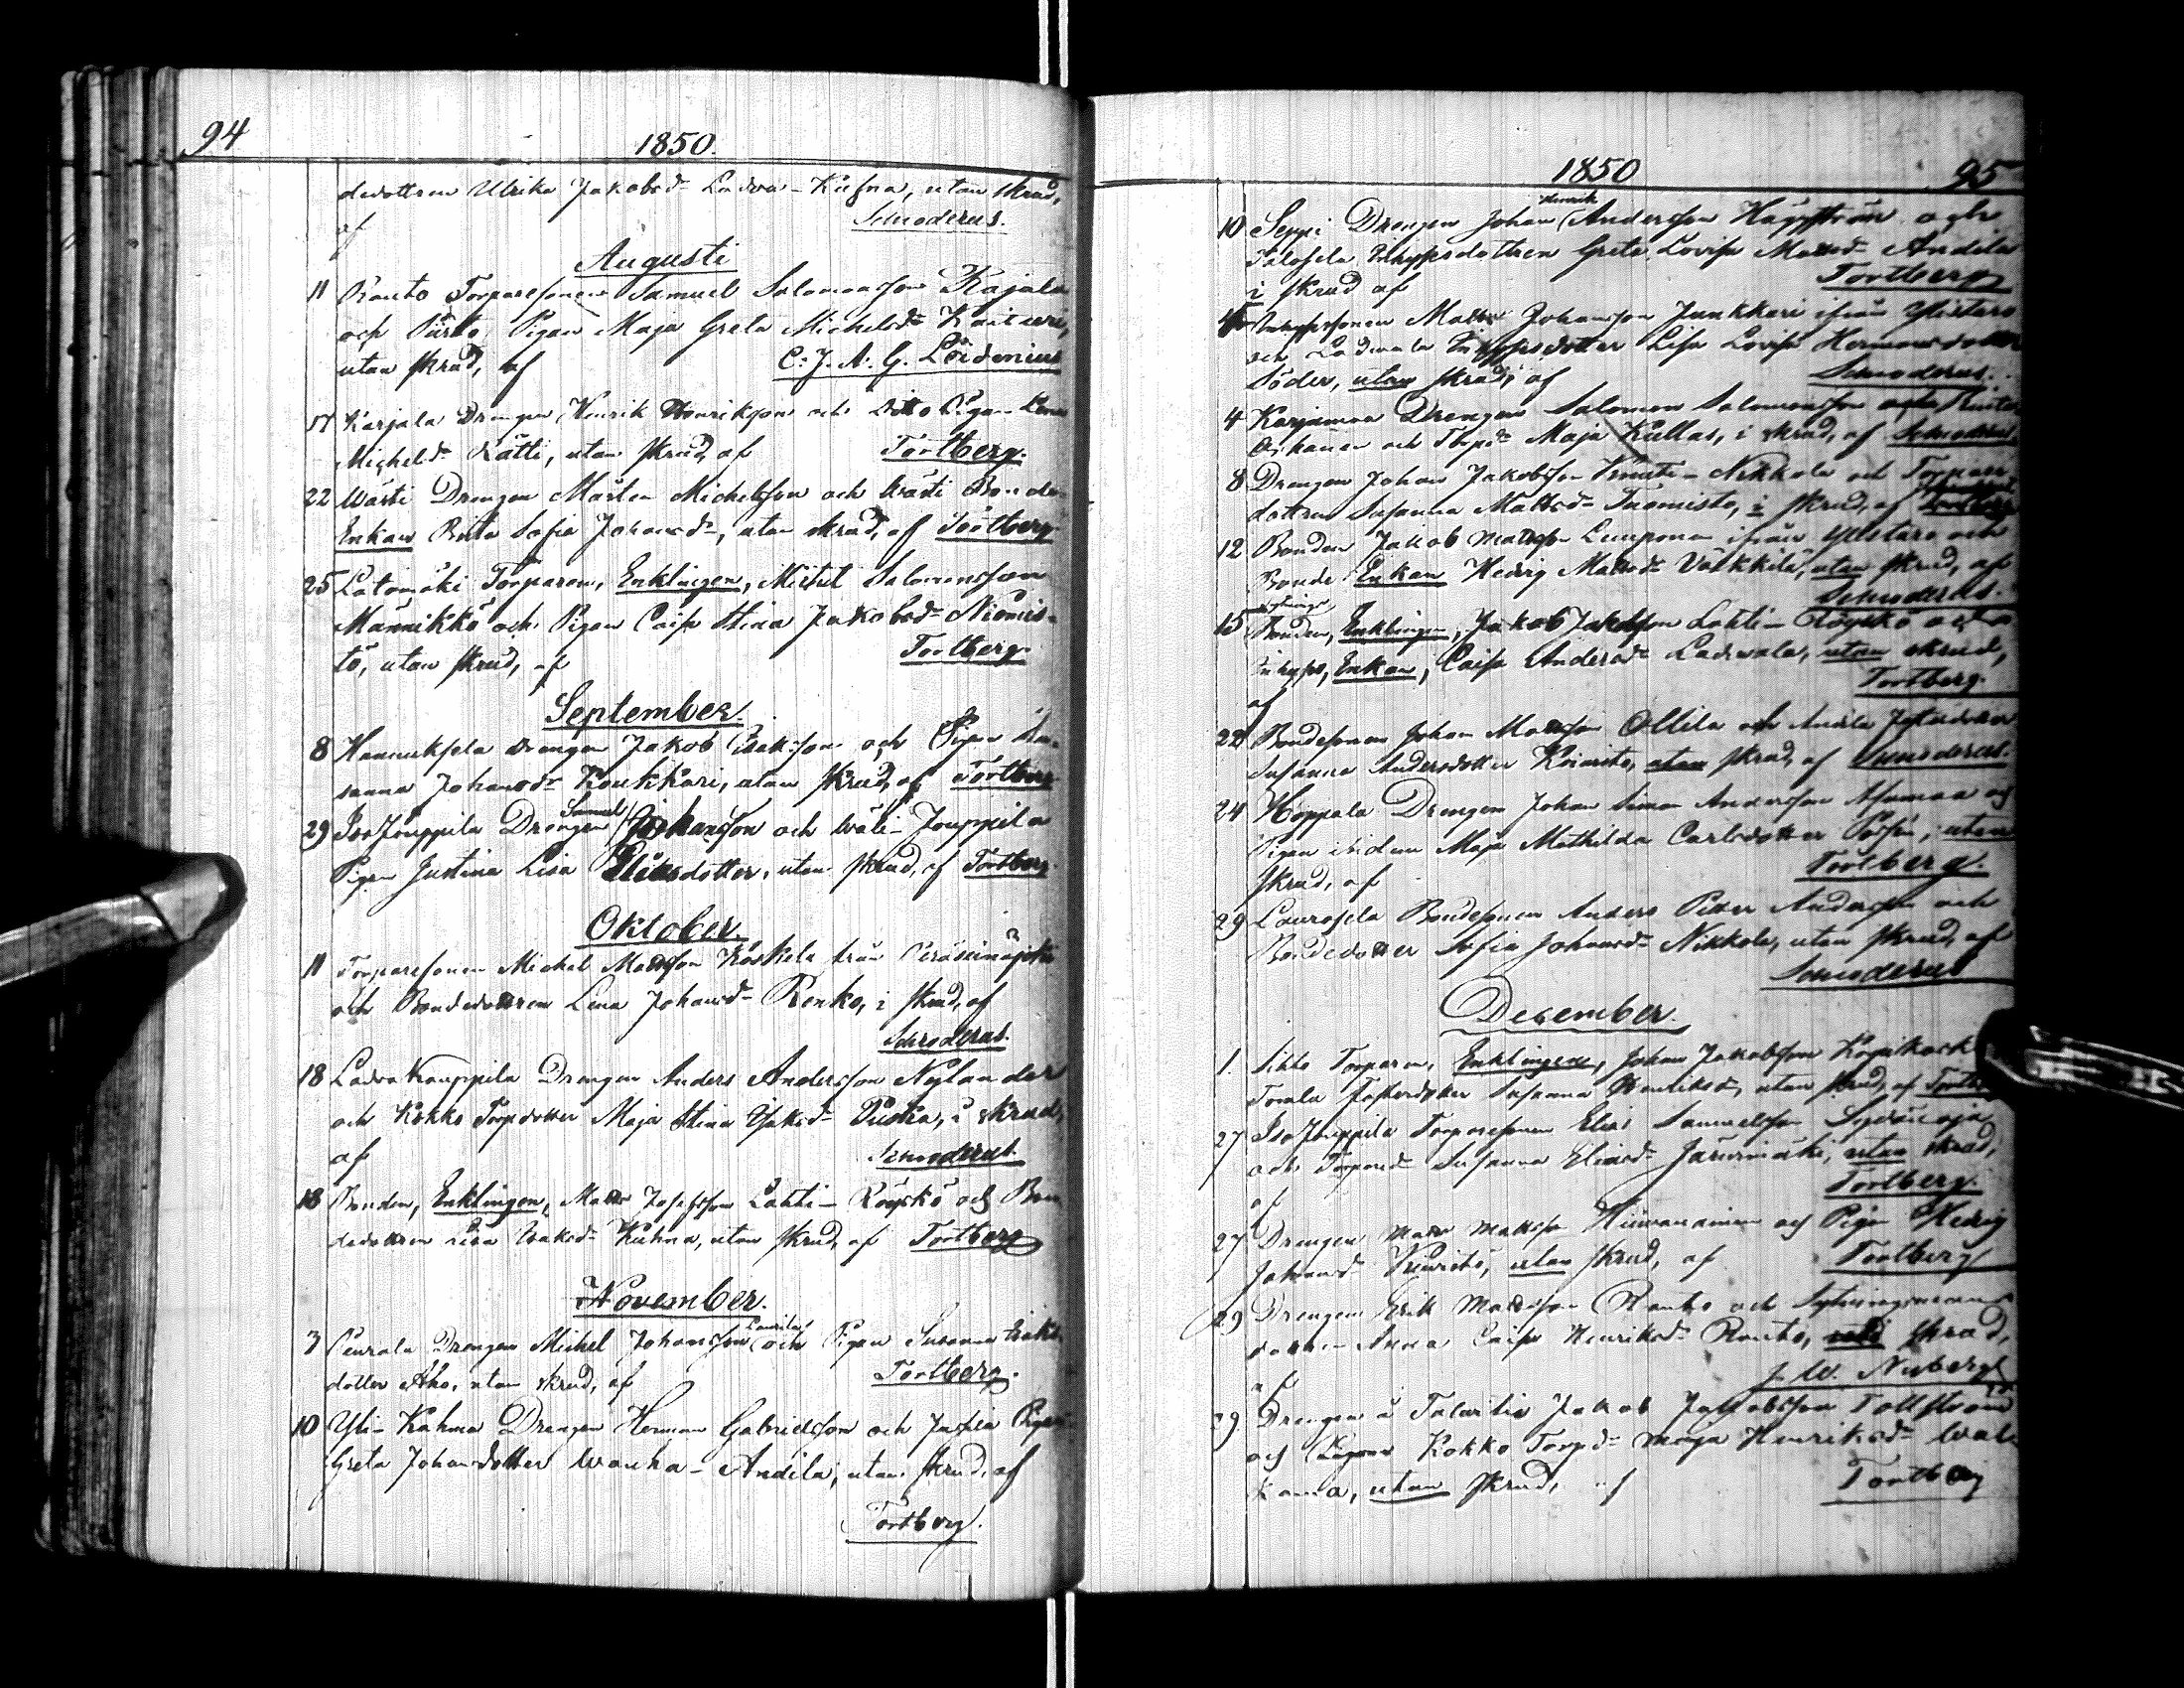 94
1850.
dedottren Ulrika Jakobsd- Ladva-Kuhna, utan skrud,
af Schroderus.
Augusti
11 Ranto Torparesonen Samuel Salomonsson Kajala
och Pigan Maja Greta Michelsd-
utan skrud, af C. J. A. G. Léidenius
17 Karjala Drengen Henrik Henriksson och ditto Pigan Lena
Michelsd- Lätti, utan skrud, af Tortberg.
22 Wästi Drengen Mårten Michelsson och Wästi Bonde
Enkan Brita Sofia Johansd-, utan skrud, af Tortberg
25 Latomäki Torparen, Enklingen, Michel Salomonsson
Männikkö och Pigan Caisa Stina Jakobsd- Niemis-
tö, utan skrud, af Tortberg.
September.
8 Hannuksela Drengen Jakob Isaksson och Pigan Su-
sanna Johansd- Koukkari, utan skrud, af Tortberg
29 IsoJouppila Drengen Samuel Johansson och Wäli-Jouppila
Pigan Justina Lisa Eliasdotter, utan skrud, af Tortberg.
Oktober.
11 Torparesonen Michel Mattsson Koskela från Peräseinäjoki
och Bondedottren Lena Johansd- Renko, i skrud, af
Schroderus.
18 Ladva Kauppila Drengen Anders Andersson Nylander
och Kokko Torpdotter Maja Stina Isaksd- i skrud,
af Schroderus.
18 Bonden, Enklingen, Matts Josefsson Lahti-Röyskö och Bon-
dedottren Lisa Isaksd- Kuhna, utan skrud, af Tortberg
November.
3 Peurala Drengen Michel Johansson Laurila och Pigan Susanna Isaks-
dotter Aho, utan skrud, af Tortberg.
10 Yli-Kahma Drengen Herman Gabrielsson och Pigan
Greta Johansdotter Wanha-Andila, utan skrud, af
Tortberg.
1850 95
10 Seppi Drengen Johan Henrik Andersson Häggström och
Inhysesdottren Greta Lovisa Mattsd- Andila
i skrud af Tortberg
Inhysessonen Matts Johansson Junkkari ifrån Ylistaro
och Ladvala Inhysesdotter Lisa Lovisa Hermansdotter
Söder, utan skrud, af Schroderus.
4 Karjanmaa Drengen Salomon Salomonsson
och Torpd- Maja Kullas, i skrud, af Schroderus
8 Drengen Johan Jakobsson Nikkola och Torpare-
dottren Susanna Mattsd- Tuomisto, i skrud, af
12 Bonden Jakob Mattsson Lumponen ifrån Ylistaro och
Bonde Enkan Hedvig Mattsd- Välkkilä, utan skrud, af
Schroderus.
15 Bonden, Enklingen, Jakob Jakobsson Lahti-Röyskö och
Inhyses, Enkan, Caisa Andersd- Ladvala, utan skrud,
af Tortberg.
22 Bondesonen Johan Mattsson Ollila och Andila
Susanna Andersdotter Kivisto, utan skrud, af Schroderus.
24 Hoppala Drengen Johan Simon Andersson Asumaa och
Pigan Maja Mathilda Carlsdotter utan
skrud, af Tortberg.
29 Laurosela Bondesonen Anders Petter Andersson och
Bondedotter Sofia Johansd- Nikkola, utan skrud, af
Schroderus
December.
1. Sikko Torparen, Enklingen, Johan Jakobsson
Tomla Susanna Henriksd-, utan skrud, af
27 IsoJouppila Torparesonen Elias Samuelsson
och Torpared- Susanna Eliasd- Järvimäki, utan skrud,
af Tortberg.
27 Drengen Matts Mattsson Hiirvanainen och Pigan Hedvig
Johansd- utan skrud, af Tortberg
29 Drengen Erik Mattsson Ranto och
Anna Caisa Henriksd- Ranto, skrud,
af J. W. Nyberg
29. Drengen å Talvitie Jakob Jakobsson Tallström
och Kokko Torpd- Maja Henriksd-
utan skrud, af Tortberg